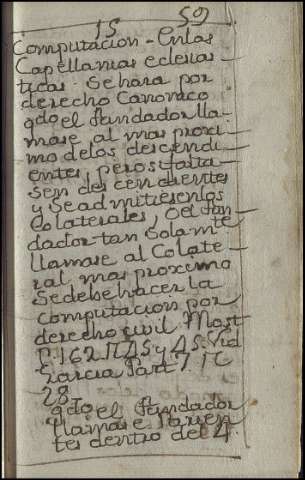 15 59
Computacion - En las
Capellanias eclesias
ticas. Se hara por
derecho Canonico
qdo el fundador lla-
mase al mas proxi-
mo de los descendi-
entes, pero si falta-
sen descendientes
y se admitiesen los
Colaterales, o el fun-
dador tan Solamte
llamase al Colate-
ral mas proximo
Se debe hacer la
Computacion por
derecho civil Most
45 y 45. Vid
Garcia Part 7
28.
qdo el fundador
llamase Parien-
tes dentro del 4.